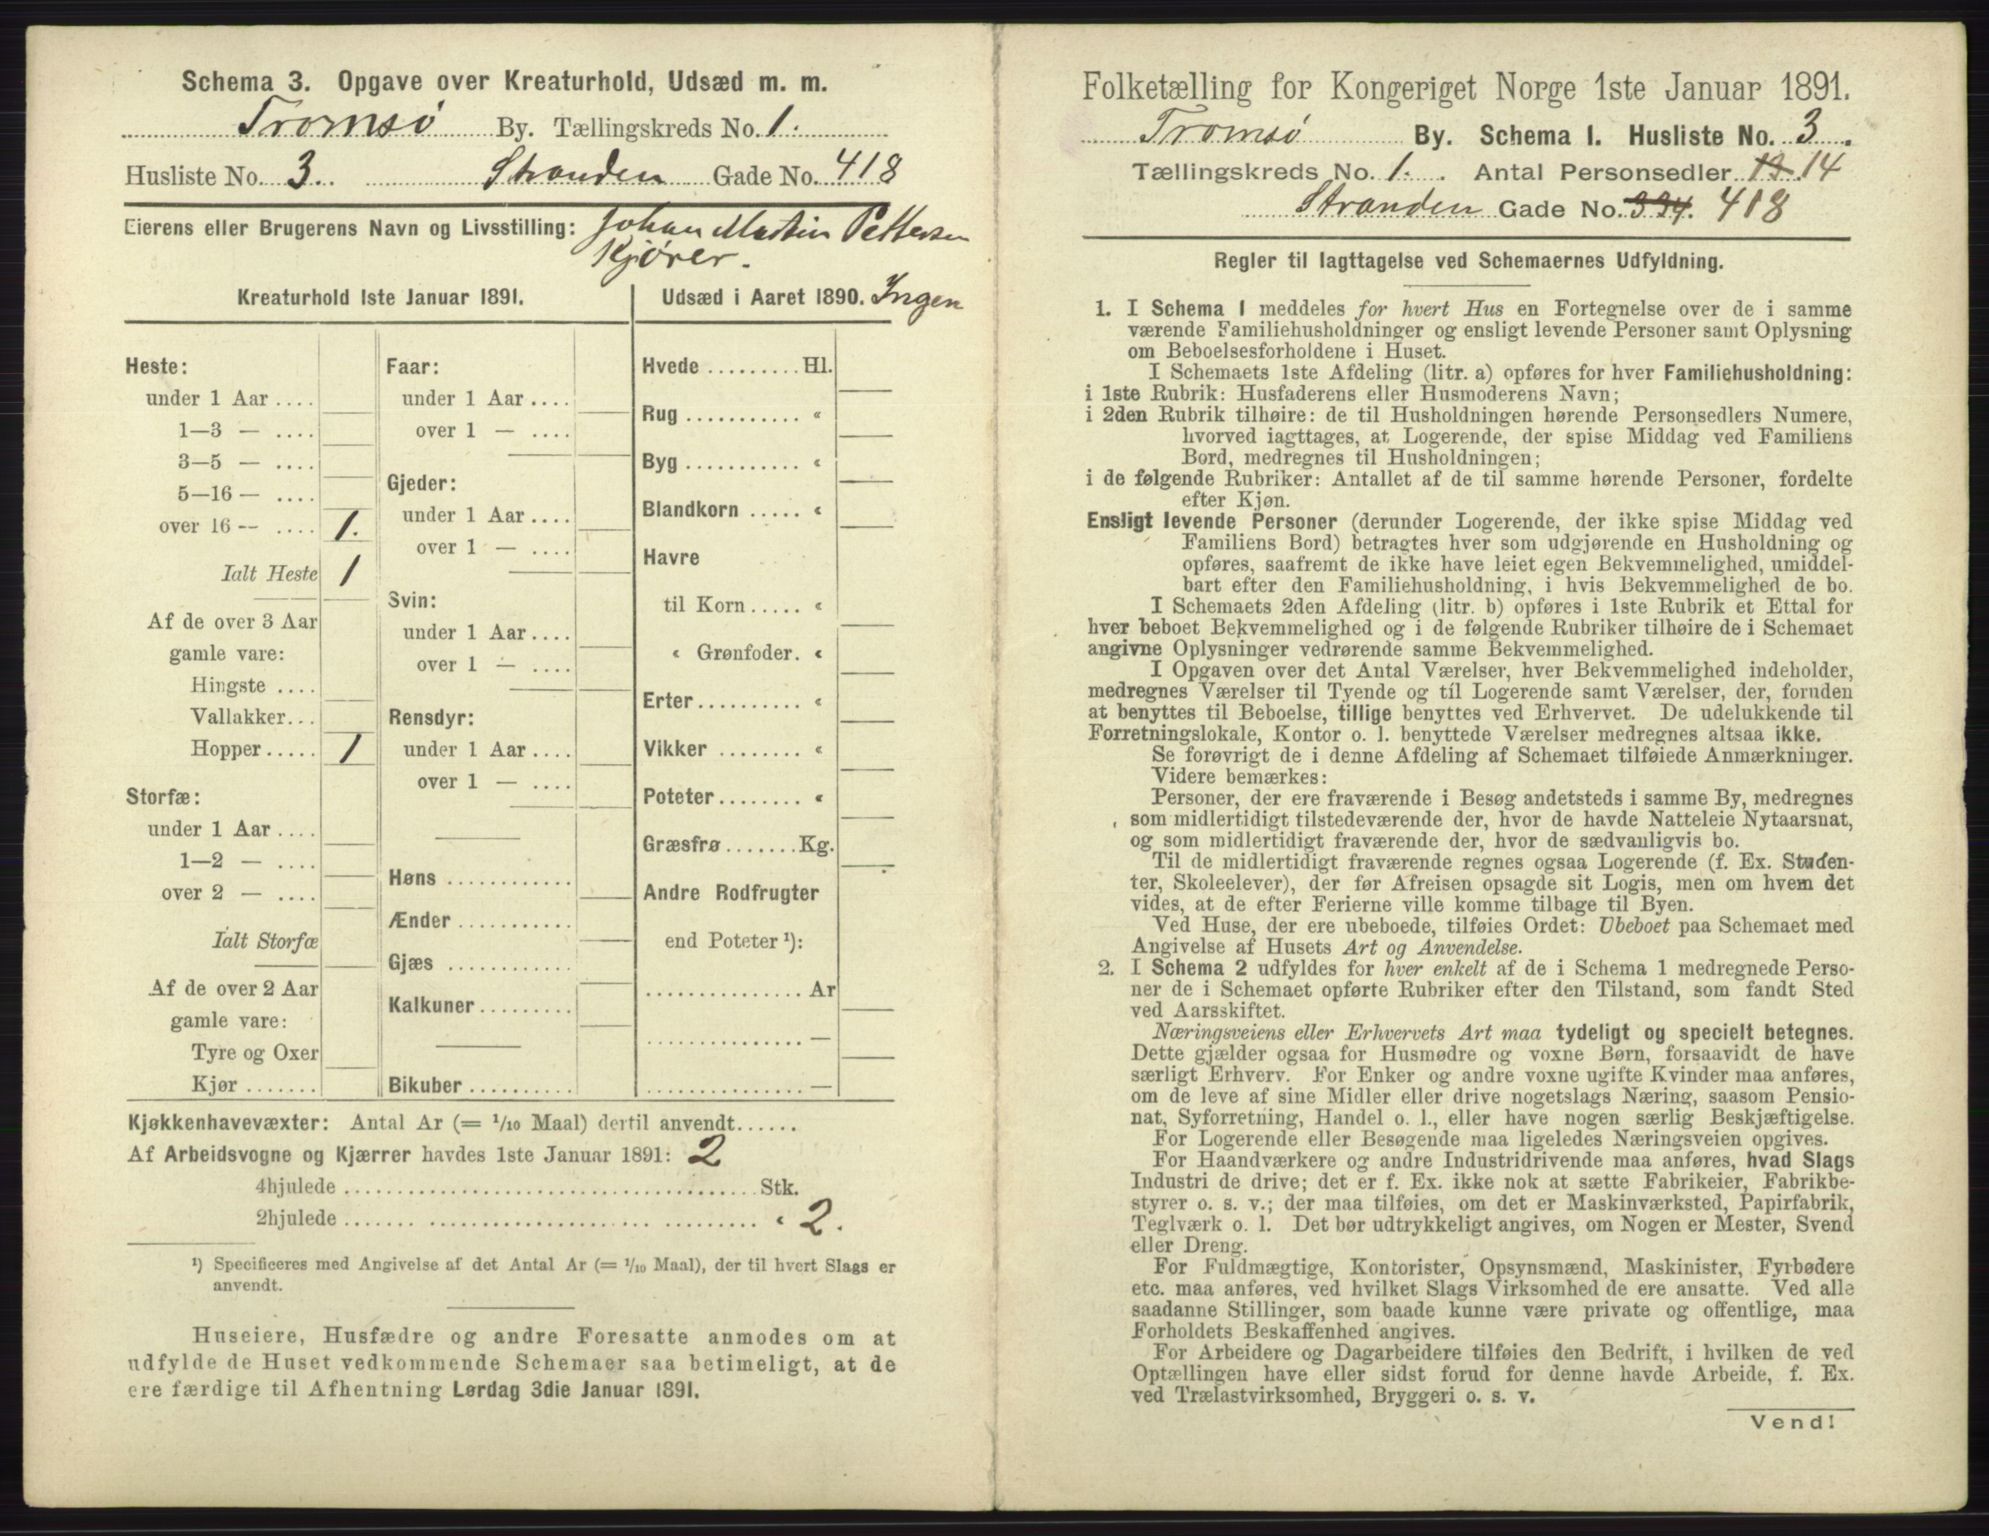 Schema 3. Opgave over Kreaturhold, Udsæd m. m.
Tromsø By. Tællingskreds No. 1.
Husliste No. 3. Stranden Gade No. 418
Eierens eller Brugerens Navn og Livsstilling: Johan Martin Pettersen
Kjører.
Kreaturhold 1ste Januar 1891.
Heste:
under 1 Aar ....
1—3 — ....
3—5 — ....
5—16 — ....
over 16 -- .... 1.
Ialt Heste 1
Af de over 3 Aar
gamle vare:
Hingste ....
Vallakker...
Hopper..... 1
Storfæ:
under 1 Aar ....
1—2 — ....
over 2 — ....
Ialt Storfæ
Af de over 2 Aar
gamle vare:
Tyre og Oxer
Kjør .......
Faar:
under 1 Aar ....
over 1 — ....
Gjeder:
under 1 Aar....
over 1 — ....
Svin:
under 1 Aar....
over 1 — ....
Rensdyr:
under 1 Aar....
over 1 — ....
Høns ............
Ænder ...........
Gjæs ............
Kalkuner.........
Bikuber ..........
Udsæd i Aaret 1890. Ingen
Hvede ......... Hl.
Rug ........... «
Byg ........... «
Blandkorn ..... «
Havre
til Korn ..... «
« Grønfoder. «
Erter.......... «
Vikker ........ «
Poteter........ «
Græsfrø....... Kg.
Andre Rodfrugter
end Poteter ¹):
............... Ar
............... —
............... —
Kjøkkenhavevæxter: Antal Ar (= 1/10 Maal) dertil anvendt......
Af Arbeidsvogne og Kjærrer havdes 1ste Januar 1891: 2
4hjulede ....................................... Stk.
2hjulede ....................................... « 2.
¹) Specificeres med Angivelse af det Antal Ar (= 1/10 Maal), der til hvert Slags er
anvendt.
Huseiere, Husfædre og andre Foresatte anmodes om at
udfylde de Huset vedkommende Schemaer saa betimeligt, at de
ere færdige til Afhentning Lørdag 3die Januar 1891.
Folketælling for Kongeriget Norge 1ste Januar 1891.
Tromsø By. Schema I. Husliste No. 3.
Tællingskreds No. 1. Antal Personsedler 13. 14
Stranden Gade No. 334. 418
Regler til Iagttagelse ved Schemaernes Udfyldning.
1. I Schema I meddeles for hvert Hus en Fortegnelse over de i samme
værende Familiehusholdninger og ensligt levende Personer samt Oplysning
om Beboelsesforholdene i Huset.
I Schemaets 1ste Afdeling (litr. a) opføres for hver Familiehusholdning:
i 1ste Rubrik: Husfaderens eller Husmoderens Navn;
i 2den Rubrik tilhøire: de til Husholdningen hørende Personsedlers Numere,
hvorved iagttages, at Logerende, der spise Middag ved Familiens
Bord, medregnes til Husholdningen;
i de følgende Rubriker: Antallet af de til samme hørende Personer, fordelte
efter Kjøn.
Ensligt levende Personer (derunder Logerende, der ikke spise Middag ved
Familiens Bord) betragtes hver som udgjørende en Husholdning og
opføres, saafremt de ikke have leiet egen Bekvemmelighed, umiddel-
bart efter den Familiehusholdning, i hvis Bekvemmelighed de bo.
I Schemaets 2den Afdeling (litr. b) opføres i 1ste Rubrik et Ettal for
hver beboet Bekvemmelighed og i de følgende Rubriker tilhøire de i Schemaet
angivne Oplysninger vedrørende samme Bekvemmelighed.
I Opgaven over det Antal Værelser, hver Bekvemmelighed indeholder,
medregnes Værelser til Tyende og til Logerende samt Værelser, der, foruden
at benyttes til Beboelse, tillige benyttes ved Erhvervet. De udelukkende til
Forretningslokale, Kontor o. l. benyttede Værelser medregnes altsaa ikke.
Se forøvrigt de i denne Afdeling af Schemaet tilføiede Anmærkninger.
Videre bemærkes:
Personer, der ere fraværende i Besøg andetsteds i samme By, medregnes
som midlertidigt tilstedeværende der, hvor de havde Natteleie Nytaarsnat,
og som midlertidigt fraværende der, hvor de sædvanligvis bo.
Til de midlertidigt fraværende regnes ogsaa Logerende (f. Ex. Studen-
ter, Skoleelever), der før Afreisen opsagde sit Logis, men om hvem det
vides, at de efter Ferierne ville komme tilbage til Byen.
Ved Huse, der ere ubeboede, tilføies Ordet: Ubeboet paa Schemaet med
Angivelse af Husets Art og Anvendelse.
2. I Schema 2 udfyldes for hver enkelt af de i Schema 1 medregnede Perso-
ner de i Schemaet opførte Rubriker efter den Tilstand, som fandt Sted
ved Aarsskiftet.
Næringsveiens eller Erhvervets Art maa tydeligt og specielt betegnes.
Dette gjælder ogsaa for Husmødre og voxne Børn, forsaavidt de have
særligt Erhverv. For Enker og andre voxne ugifte Kvinder maa anføres,
om de leve af sine Midler eller drive nogetslags Næring, saasom Pensio-
nat, Syforretning, Handel o. l., eller have nogen særlig Beskjæftigelse.
For Logerende eller Besøgende maa ligeledes Næringsveien opgives.
For Haandværkere og andre Industridrivende maa anføres, hvad Slags
Industri de drive; det er f. Ex. ikke nok at sætte Fabrikeier, Fabrikbe-
styrer o. s. v.; der maa tilføies, om det er Maskinværksted, Papirfabrik,
Teglværk o. l. Det bør udtrykkeligt angives, om Nogen er Mester, Svend
eller Dreng.
For Fuldmægtige, Kontorister, Opsynsmænd, Maskinister, Fyrbødere
etc. maa anføres, ved hvilket Slags Virksomhed de ere ansatte. Ved alle
saadanne Stillinger, som baade kunne være private og offentlige, maa
Forholdets Beskaffenhed angives.
For Arbeidere og Dagarbeidere tilføies den Bedrift, i hvilken de ved
Optællingen have eller sidst forud for denne havde Arbeide, f. Ex.
ved Trælastvirksomhed, Bryggeri o. s. v.
Vend!